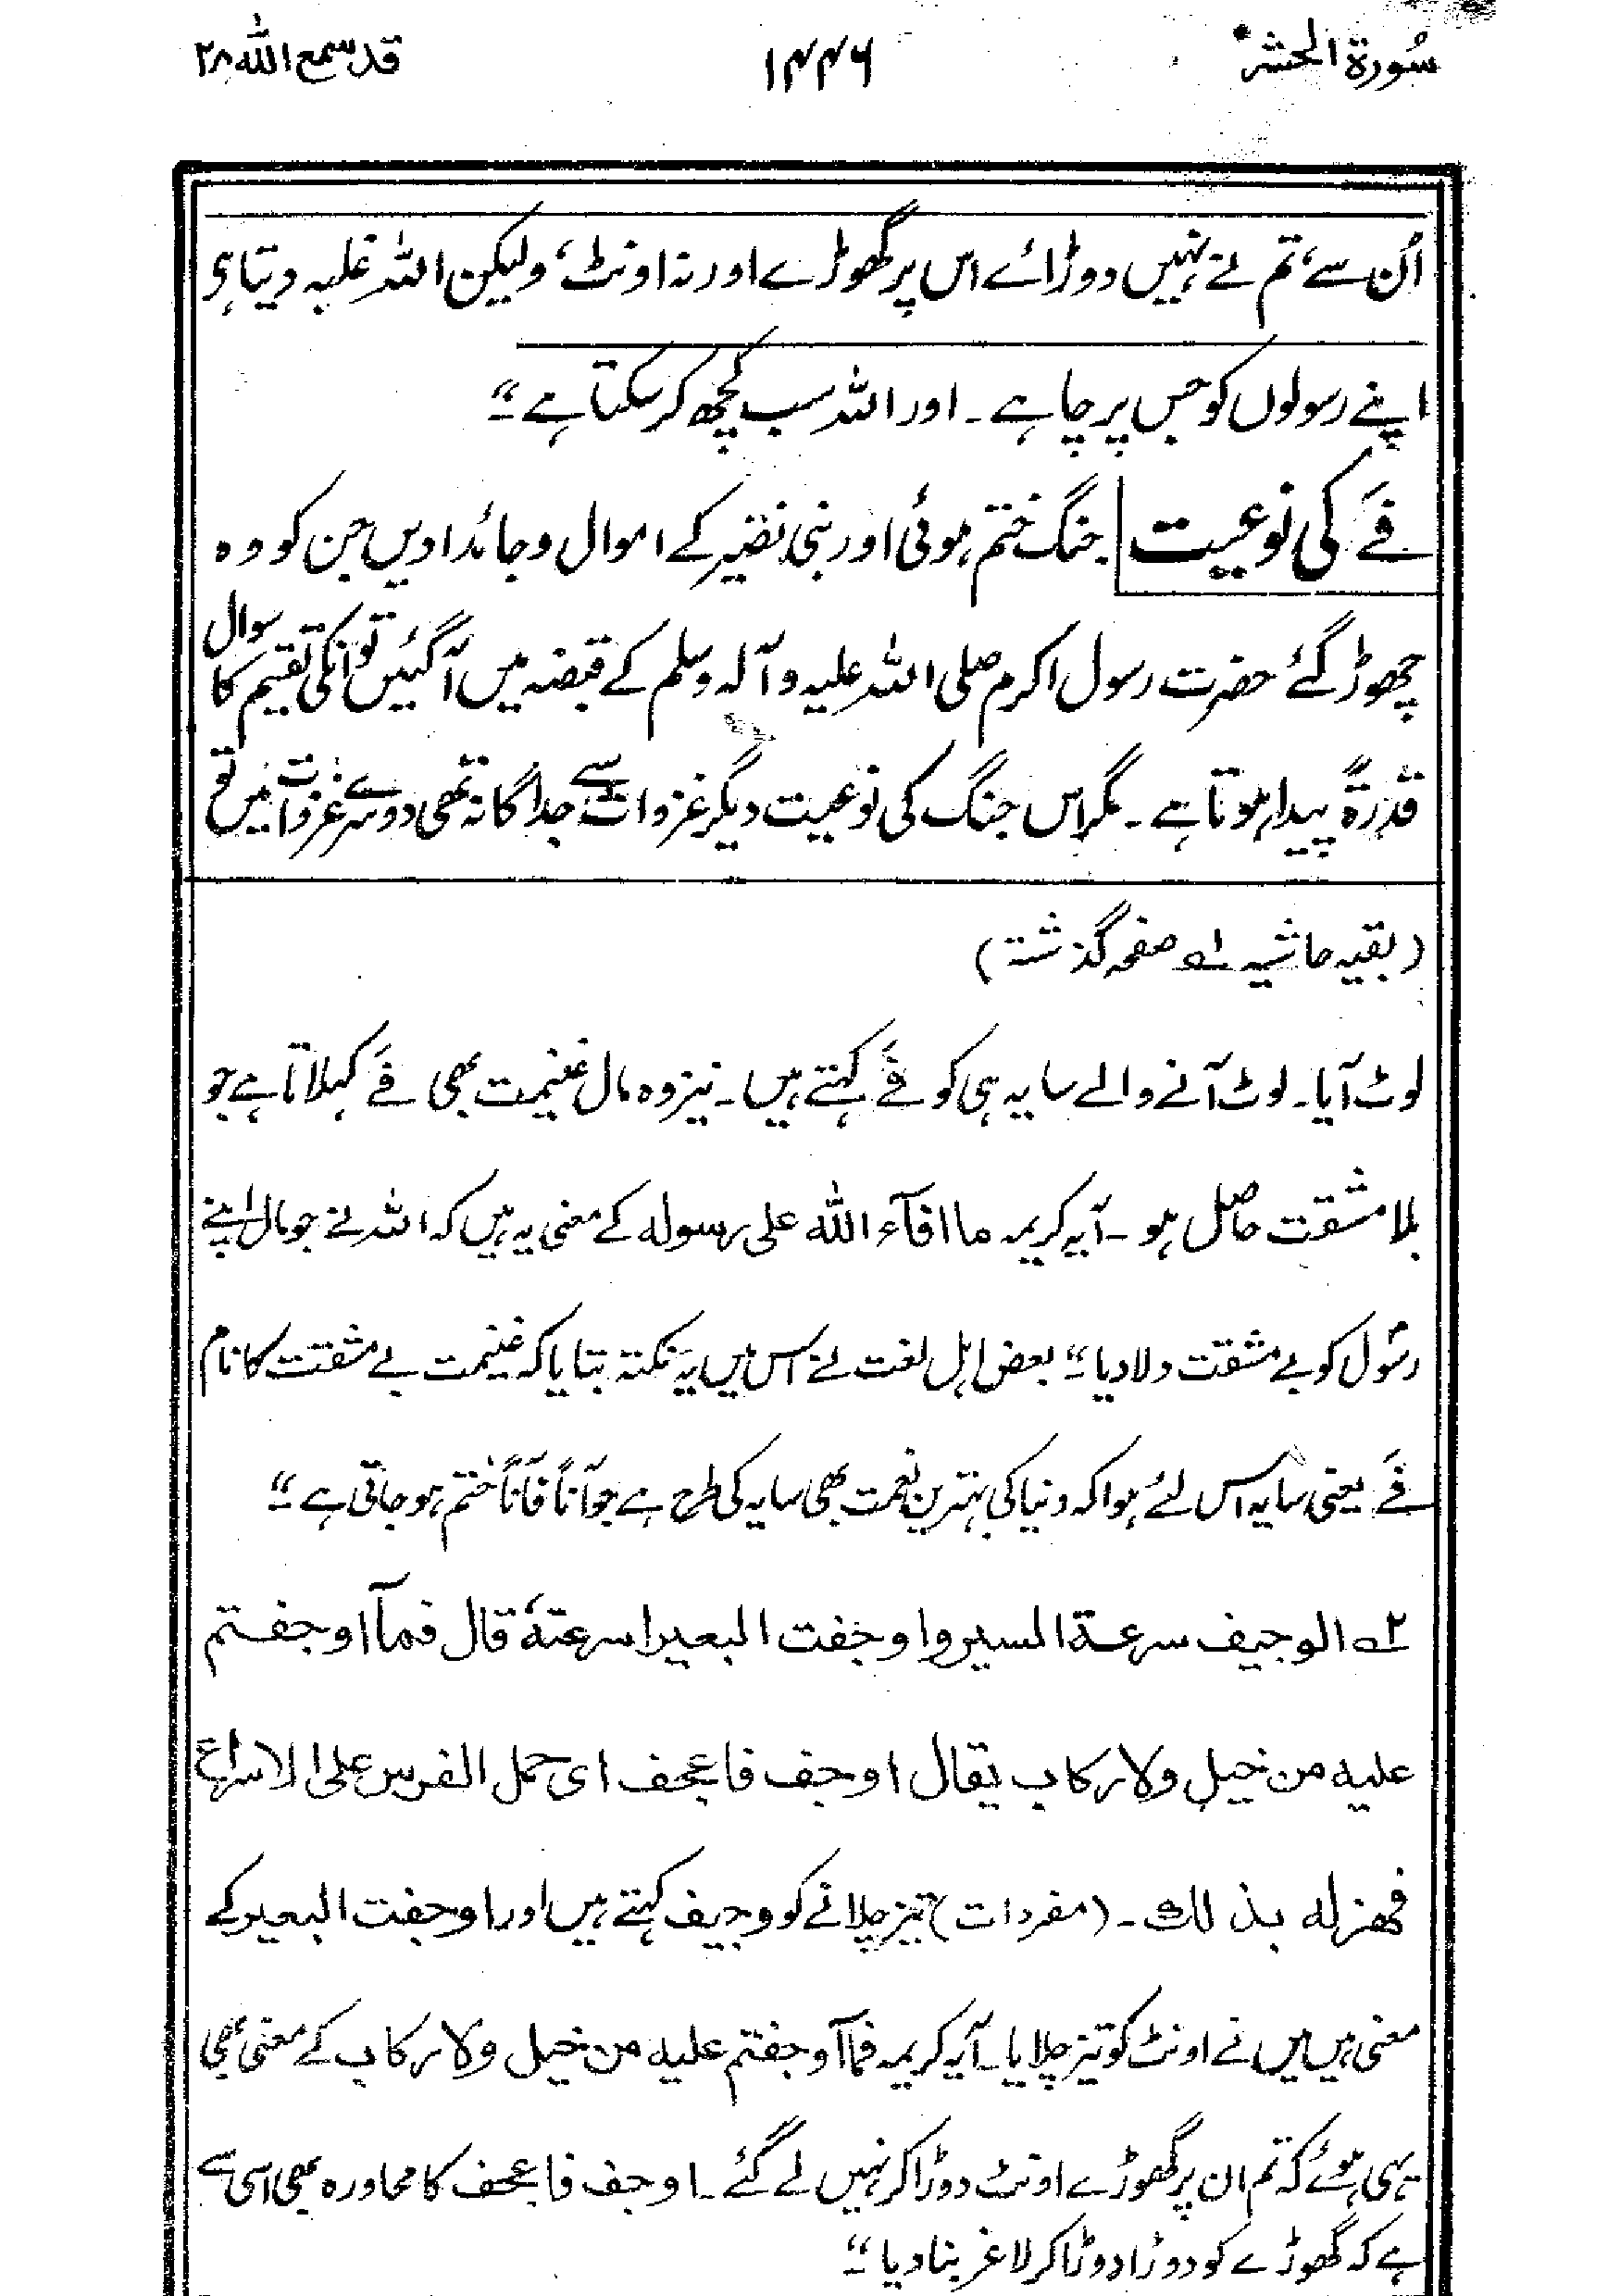 سُورۃ الحشر
۱۴۴۶
قد سمع اللہ ۲۸
اُن سے، تم نے نہیں دوڑائے اس پر گھوڑے اور نہ اونٹ، ولیکن اللہ غلبہ دیتا ہی
اپنے رسولوں کو جس پر چاہے ۔ اور اللہ سب کچھ کر سکتا ہے ؛؛
فَے کی نوعیت جنگ ختم ہوئی اور بنی نضیر کے اموال و جائدادیں جن کو وہ
چھوڑ گئے حضرت رسول اکرم صلی اللہ علیہ و آلہ وسلم کے قبضہ میں آگئیں تو انکی تقسیم کا سوال
قدرۃً پیدا ہوتا ہے ۔ مگر اس جنگ کی نوعیت دیگر غزوات سے جداگانہ تھی دوسرے غزوات میں تو
(بقیہ حاشیہ ۱؎ صفحہ گذشتہ)
لوٹ آیا ۔ لوٹ آنے والے سایہ ہی کو فَے کہتے ہیں ۔ نیز وہ مال غنیمت بھی فَے کہلاتا ہے جو
بلا مشقت حاصل ہو ۔ آیہ کریمہ ما افآء اللہ علی رسولہ کے معنی یہ ہیں کہ اللہ نے جو مال اپنے
رسُول کو بے مشقت دلا دیا ؛؛ بعض اہل لغت نے اس میں یہ نکتہ بتایا کہ غنیمت بے مشقت کا نام
فَے یعنی سایہ اس لئے ہوا کہ دنیا کی بہترین نعمت بھی سایہ کی طرح ہے جو آناً فآناً ختم ہو جاتی ہے ؛؛
۲؎ الوجیف سرعۃ السیر و اوجفت البعیر اسرعتہٗ قال فمآ اوجفتم
علیہ من خیلٍ ولا رکاب یقال اوجف فاعجف ای حمل الفرس علی الاسراع
فھزلہ بذلك ۔ (مفردات) تیز چلانے کو وجیف کہتے ہیں اور اوجفت البعیر کے
معنی ہیں میں نے اونٹ کو تیز چلایا ۔ آیہ کریمہ فمآ اوجفتم علیہ من خیل ولا رکاب کے معنی بھی
یہی ہوئے کہ تم ان پر گھوڑے اونٹ دوڑا کر نہیں لے گئے ۔ اوجف فاعجف کا محاورہ بھی اسی سے
ہے کہ گھوڑے کو دوڑا دوڑا کر لاغر بنا دیا ؛؛